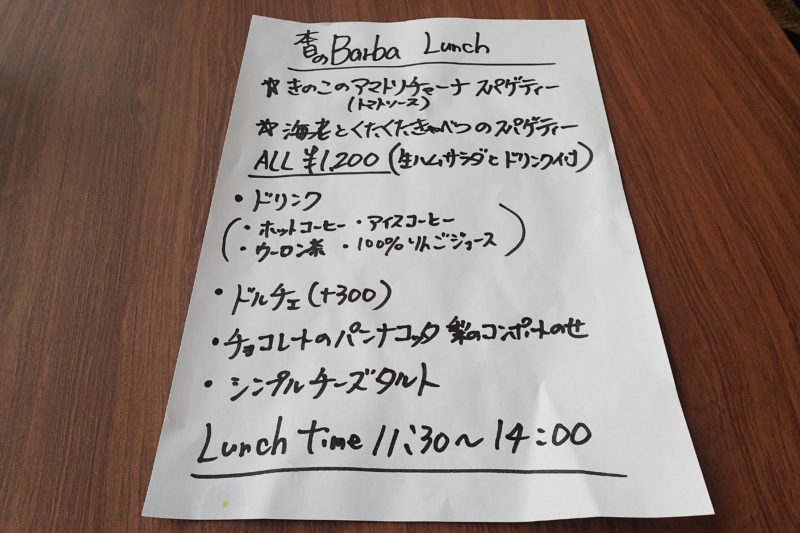 本日のBarba Lunch
☆きのこのアマトリチャーナ スパゲティー
(トマトソース)
☆海老とくたくたきゃべつのスパゲティー
ALL ¥1,200 (生ハムサラダとドリンク付)
・ドリンク
(・ホットコーヒー ・アイスコーヒー
・ウーロン茶 ・100%りんごジュース)
・ドルチェ(+300)
・チョコレートのパンナコッタ 梨のコンポートのせ
・シンプルチーズタルト
Lunch time 11:30〜14:00